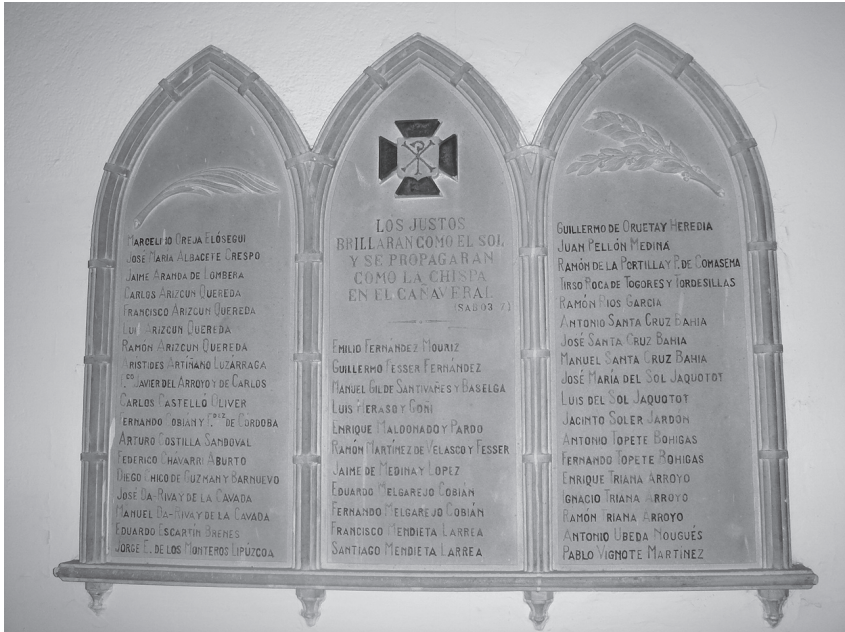 MARCELINO OREJA ELÓSEGUI
JOSÉ MARÍA ALBACETE CRESPO
JAIME ARANDA DE LOMBERA
CARLOS ARIZCUN QUEREDA
FRANCISCO ARIZCUN QUEREDA
LUIS ARIZCUN QUEREDA
RAMÓN ARIZCUN QUEREDA
ARÍSTIDES ARTIÑANO LUZÁRRAGA
F.CO JAVIER DEL ARROYO Y DE CARLOS
CARLOS CASTELLÓ OLIVER
FERNANDO COBIAN Y F.DEZ DE CÓRDOBA
ARTURO COSTILLA SANDOVAL
FEDERICO CHÁVARRI ABURTO
DIEGO CHICO DE GUZMAN Y BARNUEVO
JOSÉ DA-RIVA Y DE LA CAVADA
MANUEL DA-RIVA Y DE LA CAVADA
EDUARDO ESCARTÍN
JORGE E. DE LOS MONTEROS LIPÚZCOA
LOS JUSTOS
BRILLARAN COMO EL SOL
Y SE PROPAGARAN
COMO LA CHISPA
EN EL CAÑAVERAL
(SAB 03 7)
EMILIO FERNÁNDEZ MOURIZ
GUILLERMO FESSER FERNÁNDEZ
MANUEL GIL DE SANTIVAÑES Y BASELGA
LUIS HERASO Y GOÑI
ENRIQUE MALDONADO Y PARDO
RAMÓN MARTÍNEZ DE VELASCO Y FESSER
JAIME DE MEDINA Y LOPEZ
EDUARDO MELGAREJO COBIÁN
FERNANDO MELGAREJO COBIÁN
FRANCISCO MENDIETA LARREA
SANTIAGO MENDIETA LARREA
GUILLERMO DE ORUETA Y HEREDIA
JUAN PELLÓN MEDINA
RAMÓN DE LA PORTILLA Y P. DE COMASEMA
TIRSO ROCA DE TOGORES Y TORDESILLAS
RAMÓN RIOS GARCIA
ANTONIO SANTA CRUZ BAHIA
JOSÉ SANTA CRUZ BAHIA
MANUEL SANTA CRUZ BAHIA
JOSÉ MARÍA DEL SOL JAQUOTOT
LUIS DEL SOL JAQUOTOT
JACINTO SOLER JARDÓN
ANTONIO TOPETE BOHIGAS
FERNANDO TOPETE BOHIGAS
ENRIQUE TRIANA ARROYO
IGNACIO TRIANA ARROYO
RAMÓN TRIANA ARROYO
ANTONIO UBEDA NOUGUÉS
PABLO VIGNOTE MARTÍNEZ